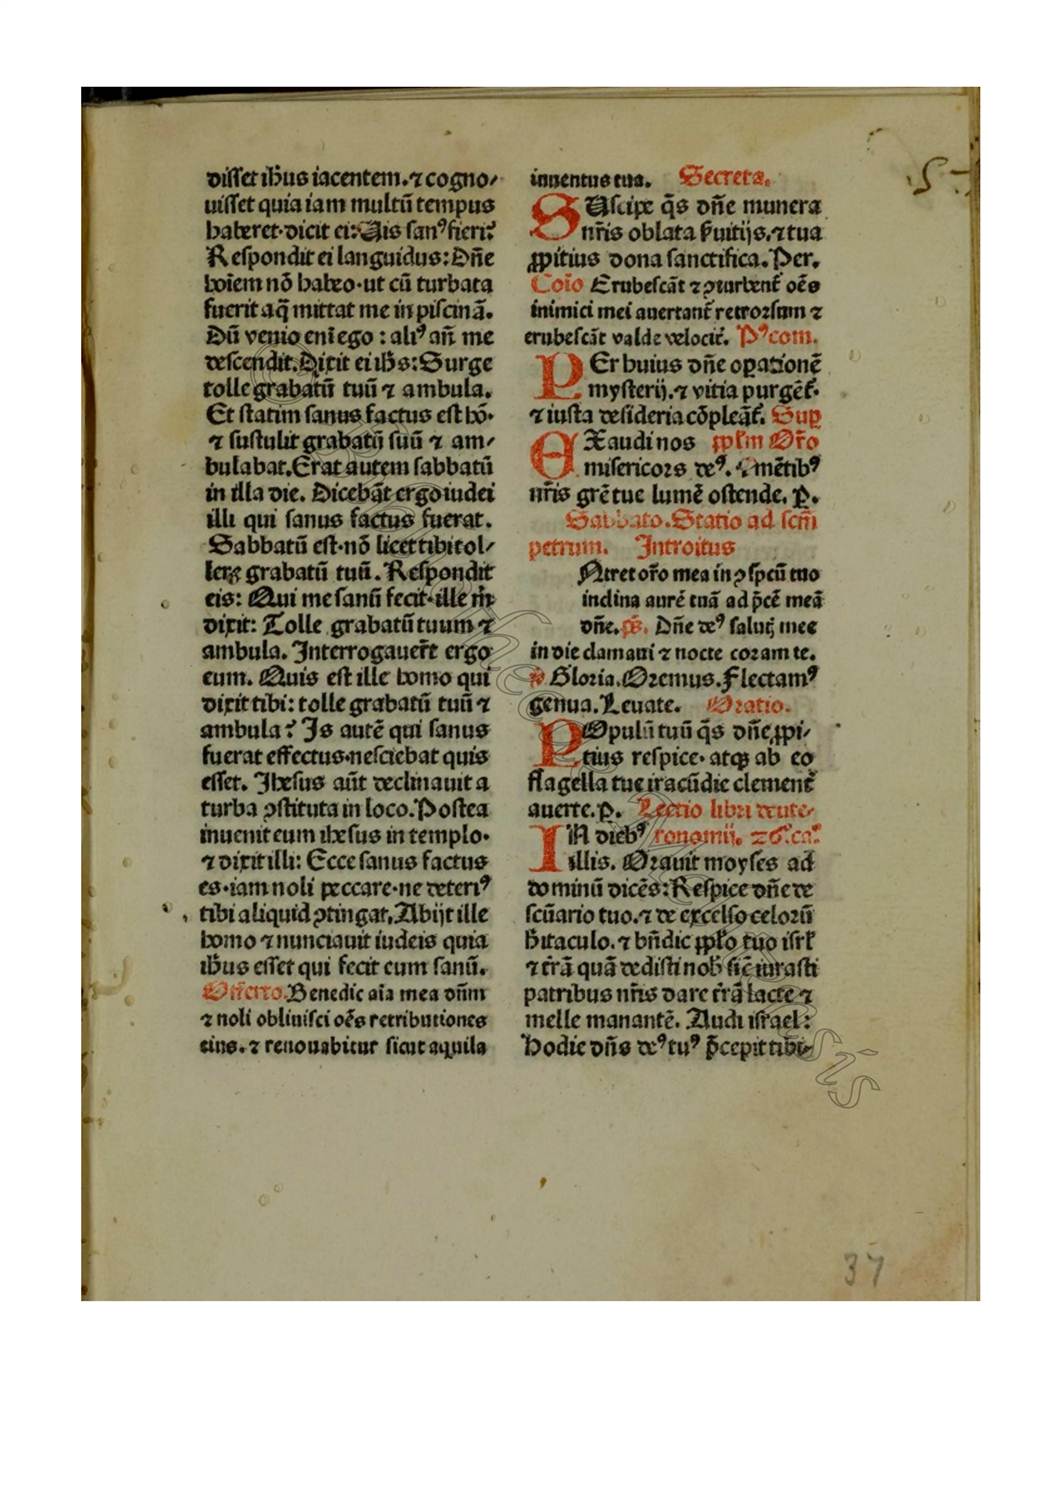 disset ihus iacentem. ⁊ cogno⸗
uisset quia iam multū tempus
haberet·dicit ei: Uis sanꝰ fieri?
Respondit ei languidus: Dn̄e
hoīem nō habeo·ut cū turbata
fuerit aq̄ mittat me in piscinā.
Dū venio enī ego : aliꝰ an̄ me
descendit. Dixit ei ihs̄: Surge
tolle grabatū tuū ⁊ ambula.
Et statim sanus factus est hō·
⁊ sustulit grabatū suū ⁊ am⸗
bulabat. Erat autem sabbatū
in illa die. Dicebāt ergo iudei
illi qui sanus factus fuerat.
Sabbatū est·nō licet tibi tol⸗
lere grabatū tuū. Respondit
eis: Qui me sanū fecit·ille m̄
dixit: Tolle grabatū tuum ⁊
ambula. Interrogauer̄t ergo
eum. Quis est ille homo qui
dixit tibi: tolle grabatū tuū ⁊
ambula? Is autē qui sanus
fuerat effectus·nesciebat quis
esset. Ihesus aūt declinauit a
turba ꝯstituta in loco. Postea
inuenit eum ihesus in templo·
⁊ dixit illi: Ecce sanus factus
es·iam noli peccare·ne deteriꝰ
tibi aliquid ꝯtingat. Abijt ille
homo ⁊ nunciauit iudeis quia
ihus esset qui fecit eum sanū.
Offerto. Benedic aīa mea dn̄m
⁊ noli obliuisci oēs retributiones
eius. ⁊ renouabitur sicut aquila
iuuentus tua. Secreta.
SUscipe q̄s dn̄e munera
nr̄is oblata ẜuitijs. ⁊ tua
ꝓpitius dona sanctifica. Per.
Coīo Erubescāt ⁊ ꝯturbent᷑ oēs
inimici mei auertant᷑ retrorsum ⁊
erubescāt valde velocit᷑. Pꝰcom.
PEr huius dn̄e oꝑationē
mysterij. ⁊ vitia purgēt᷑·
⁊ iusta desideria cōpleāt᷑. Suꝑ
EXaudi nos ꝓpl̄m Or̄o
misericors deꝰ. ⁊ mētibꝰ
nr̄is grē tue lumē ostende. ꝑ.
Sabbato. Statio ad scm̄
petrum. Introitus
Ntret or̄o mea in ꝯspcū tuo
inclina aurē tuā ad p̄cē meā
dn̄e. ps̄. Dn̄e deꝰ salutꝭ mee
in die clamaui ⁊ nocte coram te.
℣ Gloria. Oremus. Flectamꝰ
genua. Leuate. Oratio.
POpulū tuū q̄s dn̄e ꝓpi⸗
tius respice· atqꝫ ab eo
flagella tue iracūdie clement᷑
auerte. ꝑ. Lectio libri deute⸗
IN diebꝰ ronomij. 26. ca.
illis. Orauit moyses ad
dominū dicēs: Respice dn̄e de
scūario tuo. ⁊ de excelso celorū
hītaculo. ⁊ bn̄dic ꝓpl̄o tuo isrl̄
⁊ tr̄ā quā dedisti nob̄ sic̄ iurasti
patribus nr̄is dare tr̄ā lacte ⁊
melle manantē. Audi israel:
hodie dn̄s deꝰ tuꝰ p̄cepit tibi⸗
37